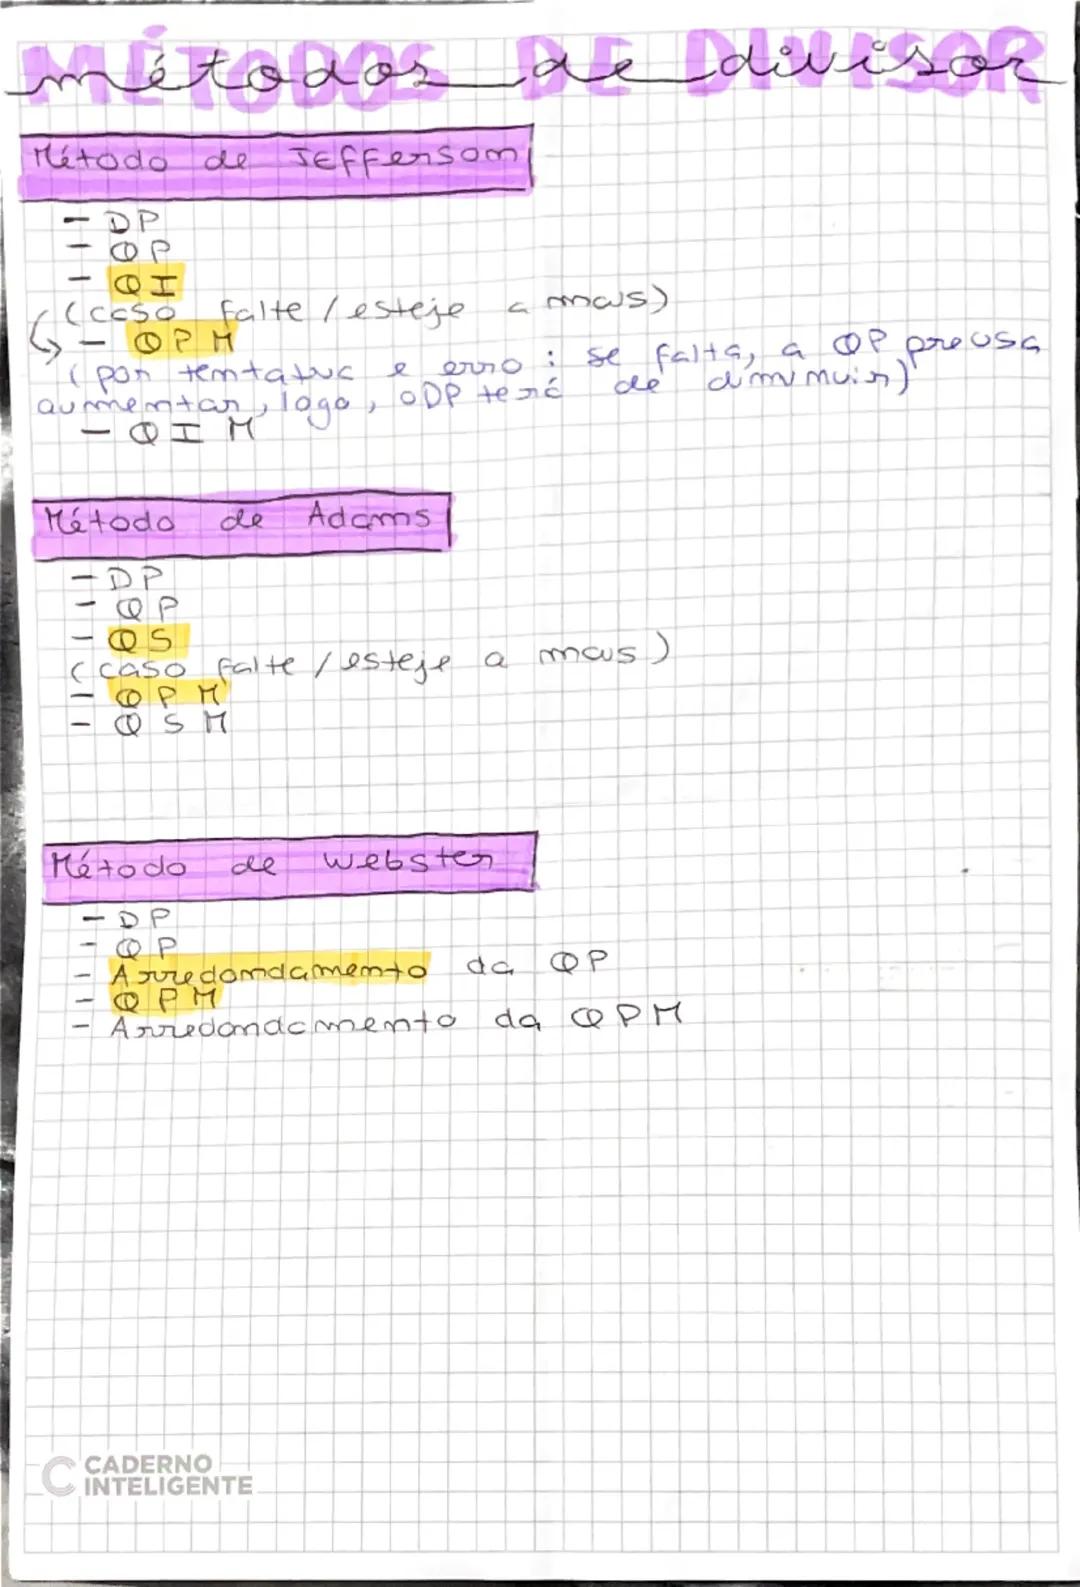 MÉTODOS DE DIVISOR
métodos de divisor
Método de JEffersom
- DP
- QP
- QI
(caso falte / esteje a mais)
- QPM
(por tentativa e erro : se falta, a QP precisa
aumentar, logo, o DP terá de diminuir)
- QIM
Método de Adams
- DP
- QP
- QS
(caso falte / esteje a mais)
- QPM
- QSM
Método de Webster
- DP
- QP
- Arredondamento da QP
- QPM
- Arredondamento da QPM
CADERNO
INTELIGENTE